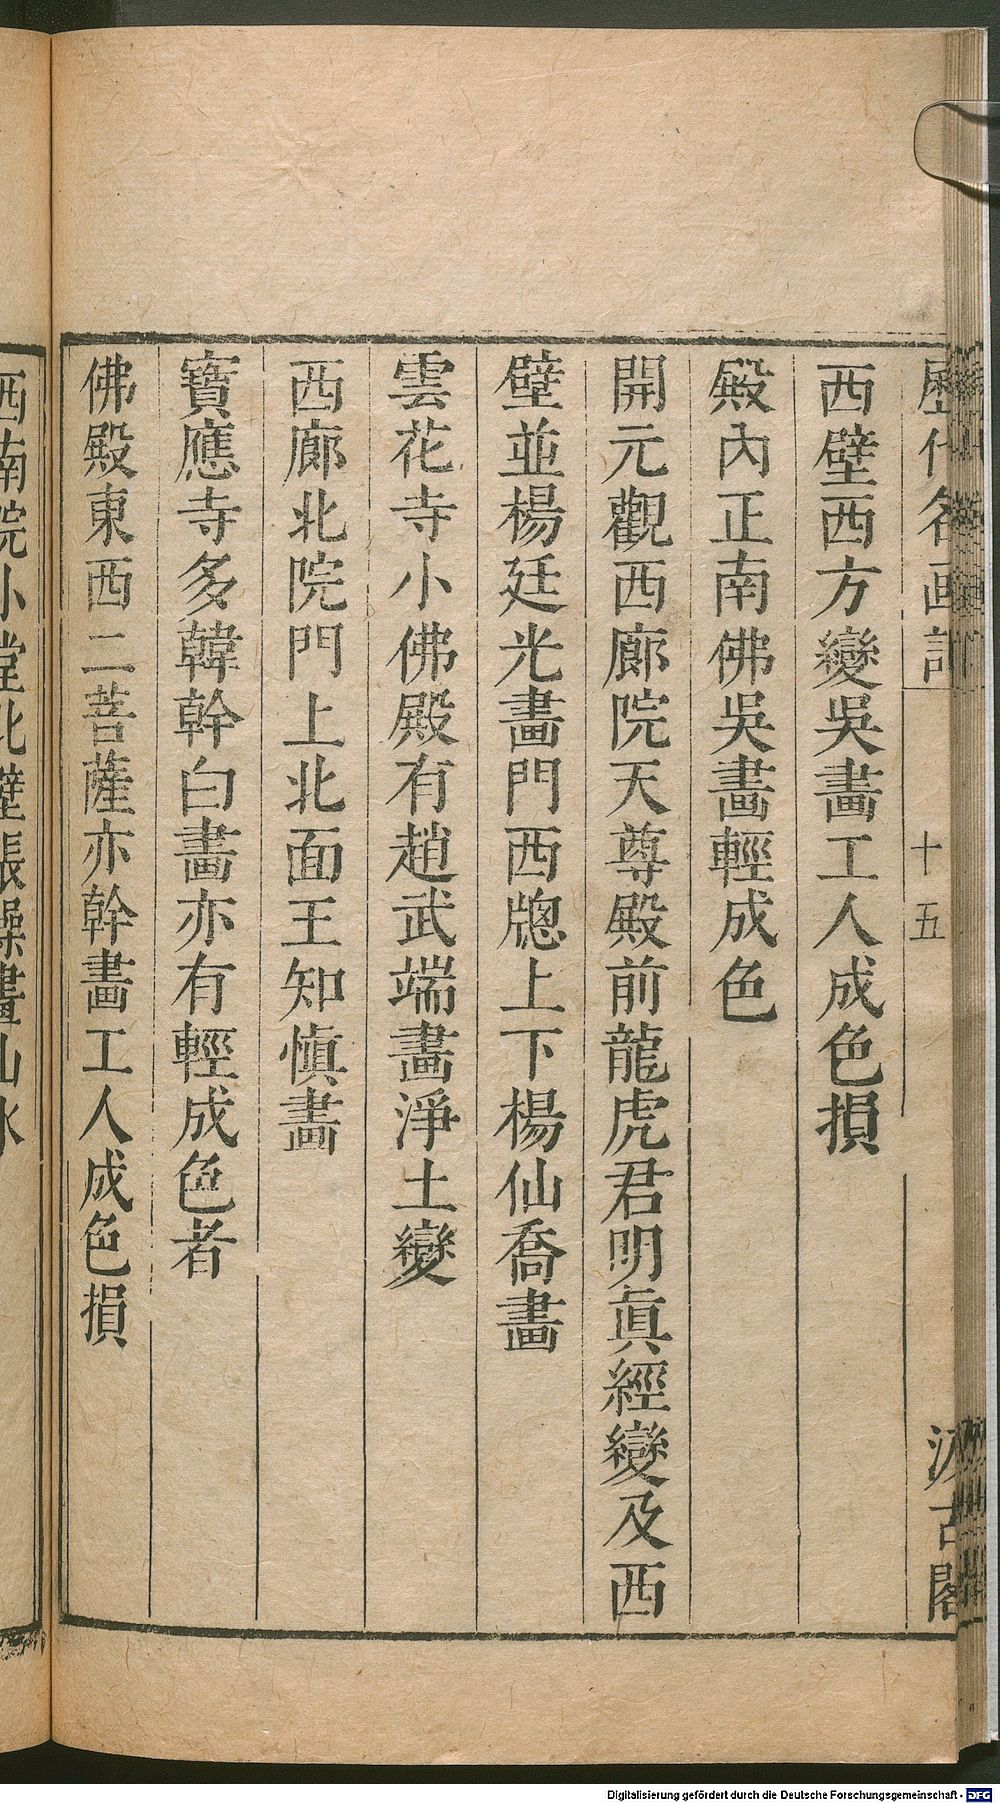 歷代名畫記
十五
汲古閣
西壁西方變吳畫工人成色損
殿內正南佛吳畫輕成色
開元觀西廊院天尊殿前龍虎君明眞經變及西
壁並楊廷光畫門西牕上下楊仙喬畫
雲花寺小佛殿有趙武端畫淨土變
西廊北院門上北面王知愼畫
寶應寺多韓幹白畫亦有輕成色者
佛殿東西二菩薩亦幹畫工人成色損
西南院小堂北壁張璪畫山水
Digitalisierung gefördert durch die Deutsche Forschungsgemeinschaft - DFG